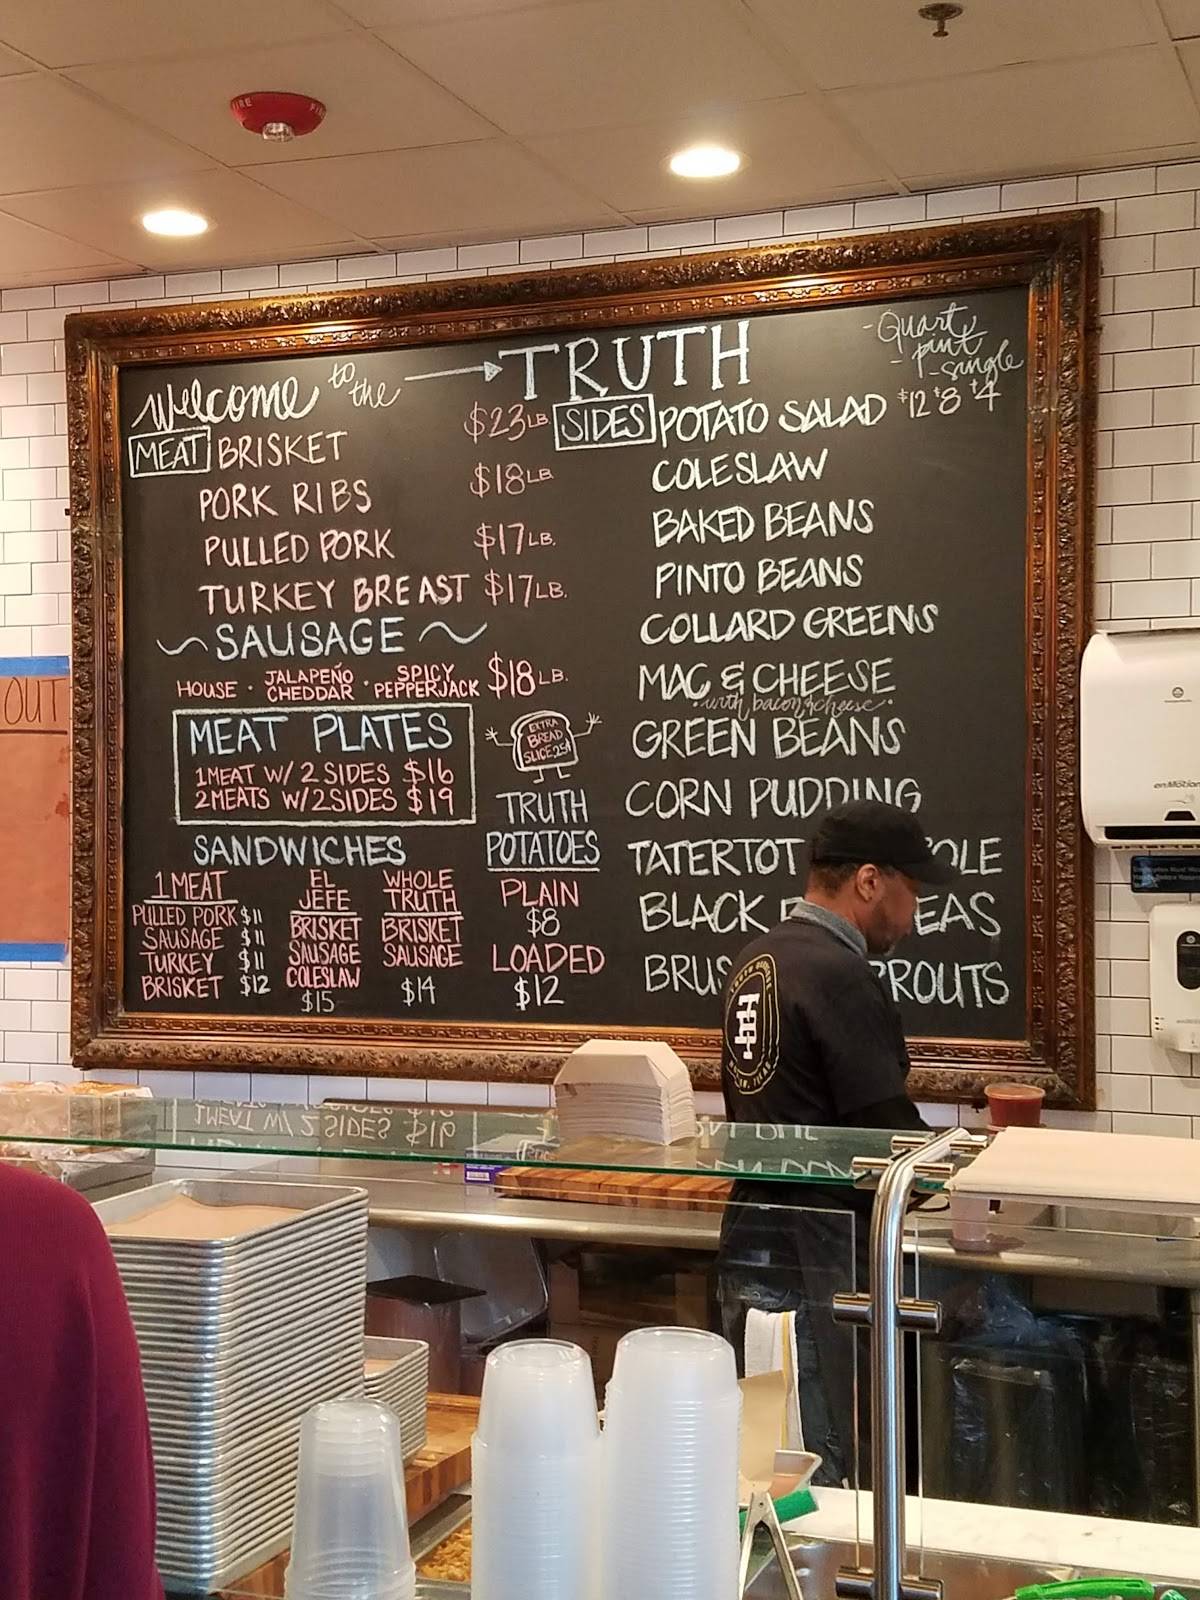 Welcome to the TRUTH
MEAT BRISKET $23 LB
PORK RIBS $18 LB
PULLED PORK $17 LB.
TURKEY BREAST $17 LB.
~ SAUSAGE ~
HOUSE · JALAPEÑO CHEDDAR · SPICY PEPPERJACK $18 LB.
MEAT PLATES
1 MEAT W/ 2 SIDES $16
2 MEATS W/ 2 SIDES $19
EXTRA
BREAD
SLICE 25¢
SANDWICHES
1 MEAT
PULLED PORK $11
SAUSAGE $11
TURKEY $11
BRISKET $12
EL
JEFE
BRISKET
SAUSAGE
COLESLAW
$15
WHOLE
TRUTH
BRISKET
SAUSAGE
$14
TRUTH
POTATOES
PLAIN
$8
LOADED
$12
- Quart
- pint
- single
SIDES POTATO SALAD $12 $8 $4
COLESLAW
BAKED BEANS
PINTO BEANS
COLLARD GREENS
MAC & CHEESE
· with bacon & cheese ·
GREEN BEANS
CORN PUDDING
TATERTOT OLE
BLACK EAS
BRUS ROUTS
OUT
enMotion